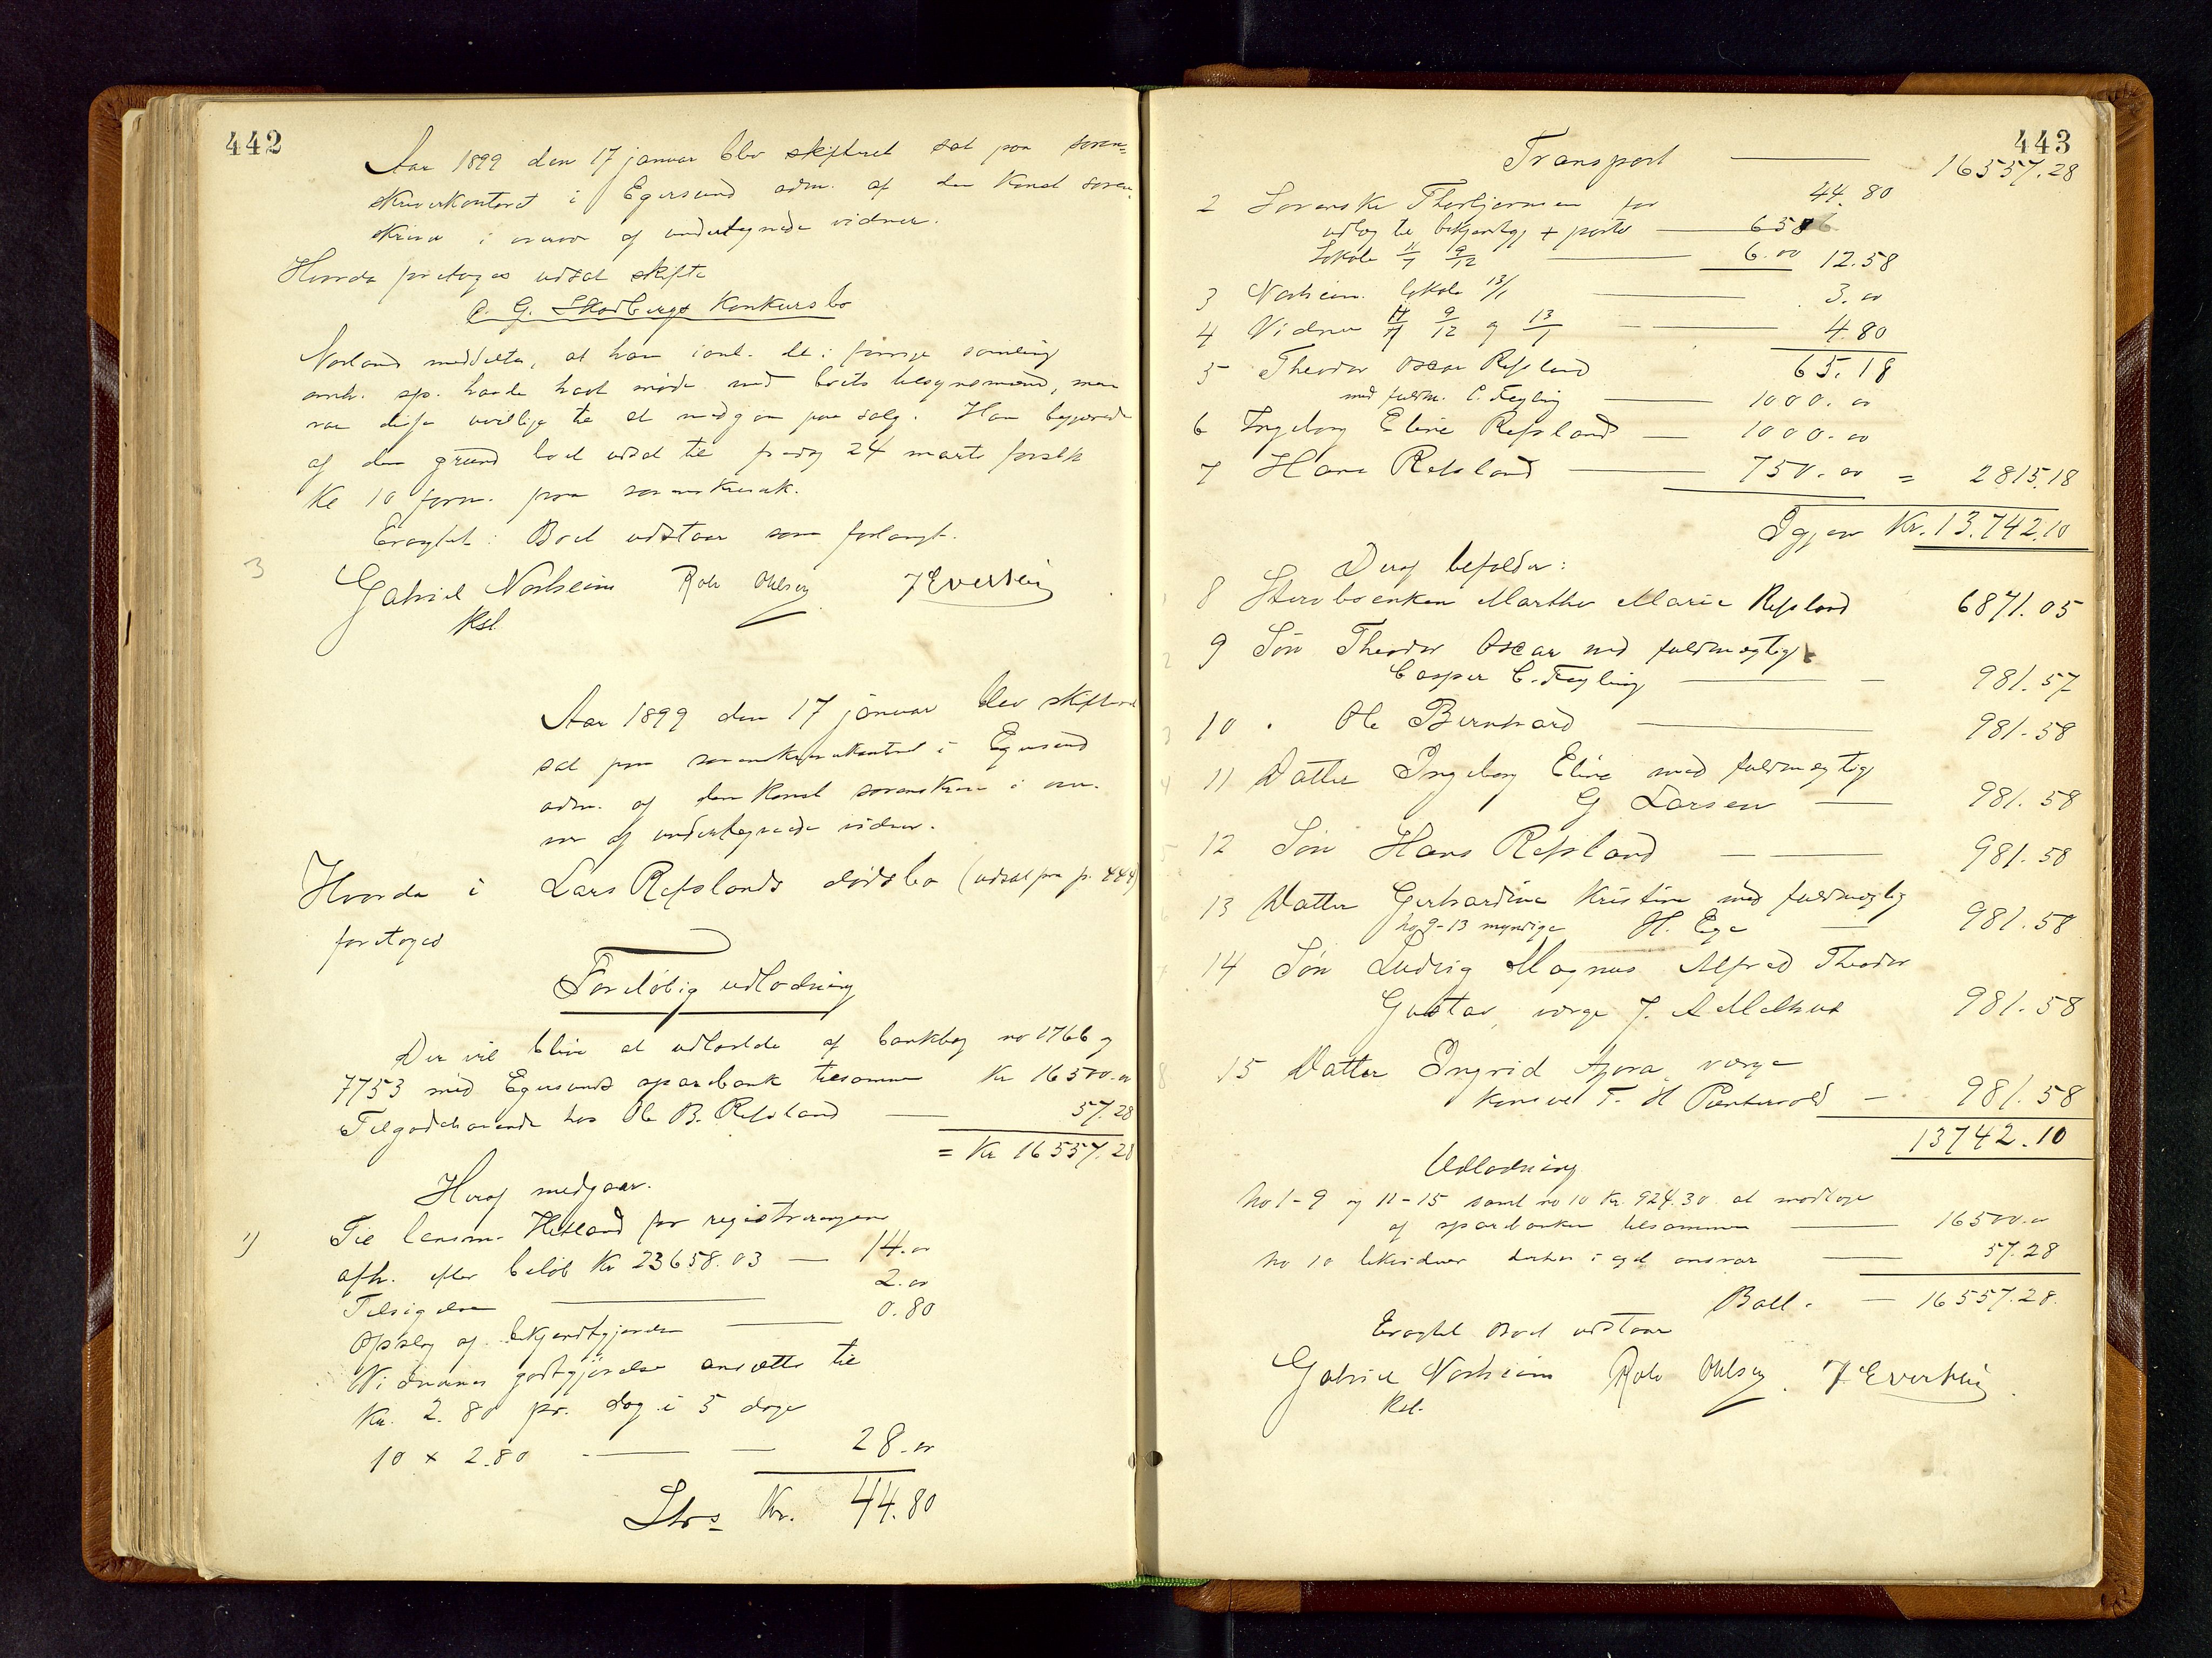 442
Aar 1899 den 17 januar blev skifteret sat paa soren=
skriverkontoret i Egersund adm. af den konst soren
skriver i overvær af undertegnede vidner.
Hvorda foretoges udsat skifte
C. G. Skadbergs Konkursbo
Norland meddelte, at han i anl. det i forrige samling
omh. sp. havde havt møde med boets tilsynsmænd, men
var disse uvillige til at medgaa paa salg. Han begjærede
af den grund boet udsat til fredag 24 marts førstk
Kl 10 form. paa sorenskriverk.
Eragtet: Boet udstaar som forlangt.
3
Gabriel Norheim Rolv Ohlsen F Evertsen
Kst
Aar 1899 den 17 januar blev skifteret
sat paa sorenskriverkontoret i Egersund
adm. af den konst sorenskriver i over-
vær af undertegnede vidner.
Hvorda i Lars Refslands dødsbo (udsat fra p. 444)
foretoges
Foreløbig udlodning
Der vil blive at udlodde af bankbog no 1766 og
7753 med Egersunds sparebank tilsammen Kr 16500.00
Tilgodehavende hos Ole B. Refsland 57.28
= Kr 16557.28
Heraf medgaar.
1) Til lensm. Hetland for registreringen
afh. efter beløb Kr 23658.03 — 14.00
Tilsigelse 2.00
Opslag af bekjendtgjørelse 0.80
Vidnernes godtgjørelse ansættes til
Kr. 2.80 pr. dag i 5 dage
10 x 2.80 — 28.00
Ltrs Kr. 44.80
443
Transport — 16557.28
44.80
2 Sorenskr Thorbjørnsen for
udlæg til bekjendtgj + porto — 658
Lokale 11/7 9/12 — 6.00 12.58
3 Norheim. lokale 13/1 — 3.00
4 Vidner 11/7 9/12 og 13/1 — 4.80
65.18
5 Theodor Oscar Refsland
med fuldm. C. Feyling — 1000.00
6 Ingeborg Eline Refsland — 1000.00
7 Hans Refsland — 750.00 = 2815.18
Igjen Kr. 13.742.10
Deraf befalder:
8 Stervboenken Marthe Marie Refsland 6871.05
9 Søn Theodor Oscar med fuldmægtig
Casper C. Feyling — 981.57
10 . Ole Bernhard — 981.58
11 Datter Ingeborg Eline med fuldmægtig
G Larsen — 981.58
12 Søn Hans Refsland — 981.58
13 Datter Gerhardine Kristine med fuldmægtig
no 9-13 myndige H. Ege — 981.58
14 Søn Ludvig Magnus Alfred Theodor
Gustav, værge J. A Melhus 981.58
15 Datter Ingrid Agora, værge
Konsul T. H Puntervold — 981.58
13742.10
Udlodning
No 1-9 og 11-15 samt no 10 Kr. 924.30 at modtage
af sparebanken tilsammen — 16500.00
No 10 likviderer derhos i eget ansvar — 57.28
Ball. — 16557.28.
Eragtet Boet udstaar
Gabriel Norheim Rolv Ohlsen. F Evertsen.
Kst.